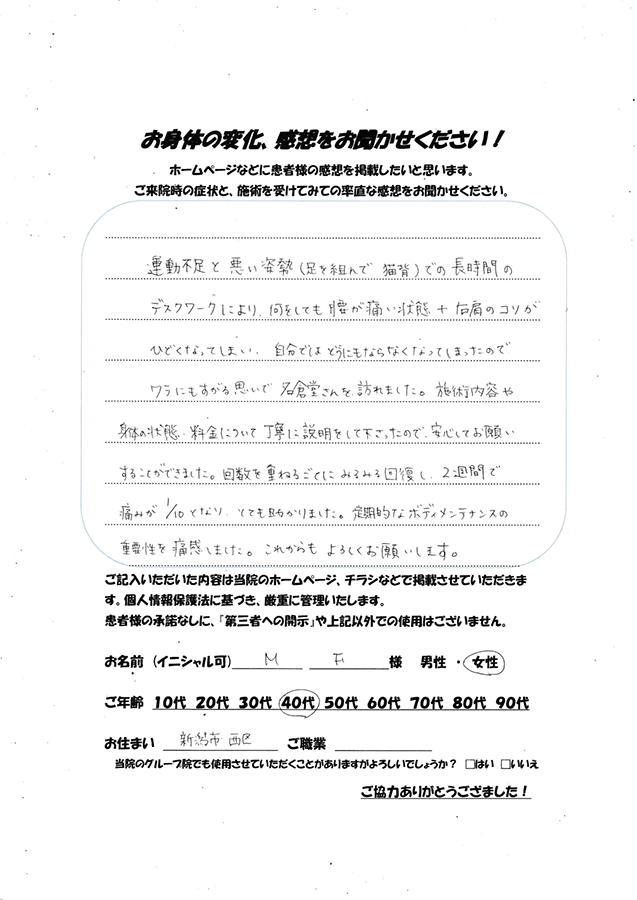 お身体の変化、感想をお聞かせください！
ホームページなどに患者様の感想を掲載したいと思います。
ご来院時の症状と、施術を受けてみての率直な感想をお聞かせください。
運動不足と悪い姿勢(足を組んで 猫背)での長時間の
デスクワークにより、何をしても腰が痛い状態＋右肩のコリが
ひどくなってしまい、自分ではどうにもならなくなってしまったので
ワラにもすがる思いで名倉堂さんを訪れました。施術内容や
身体の状態、料金について丁寧に説明をして下さったので、安心してお願い
することができました。回数を重ねるごとにみるみる回復し、2週間で
痛みが1/10となり、とても助かりました。定期的なボディメンテナンスの
重要性を痛感しました。これからもよろしくお願いします。
ご記入いただいた内容は当院のホームページ、チラシなどで掲載させていただきま
す。個人情報保護法に基づき、厳重に管理いたします。
患者様の承諾なしに、「第三者への開示」や上記以外での使用はございません。
お名前（イニシャル可） M F 様 男性・女性
ご年齢 10代 20代 30代 40代 50代 60代 70代 80代 90代
お住まい 新潟市西区 ご職業
当院のグループ院でも使用させていただくことがありますがよろしいでしょうか？ □はい □いいえ
ご協力ありがとうござました！